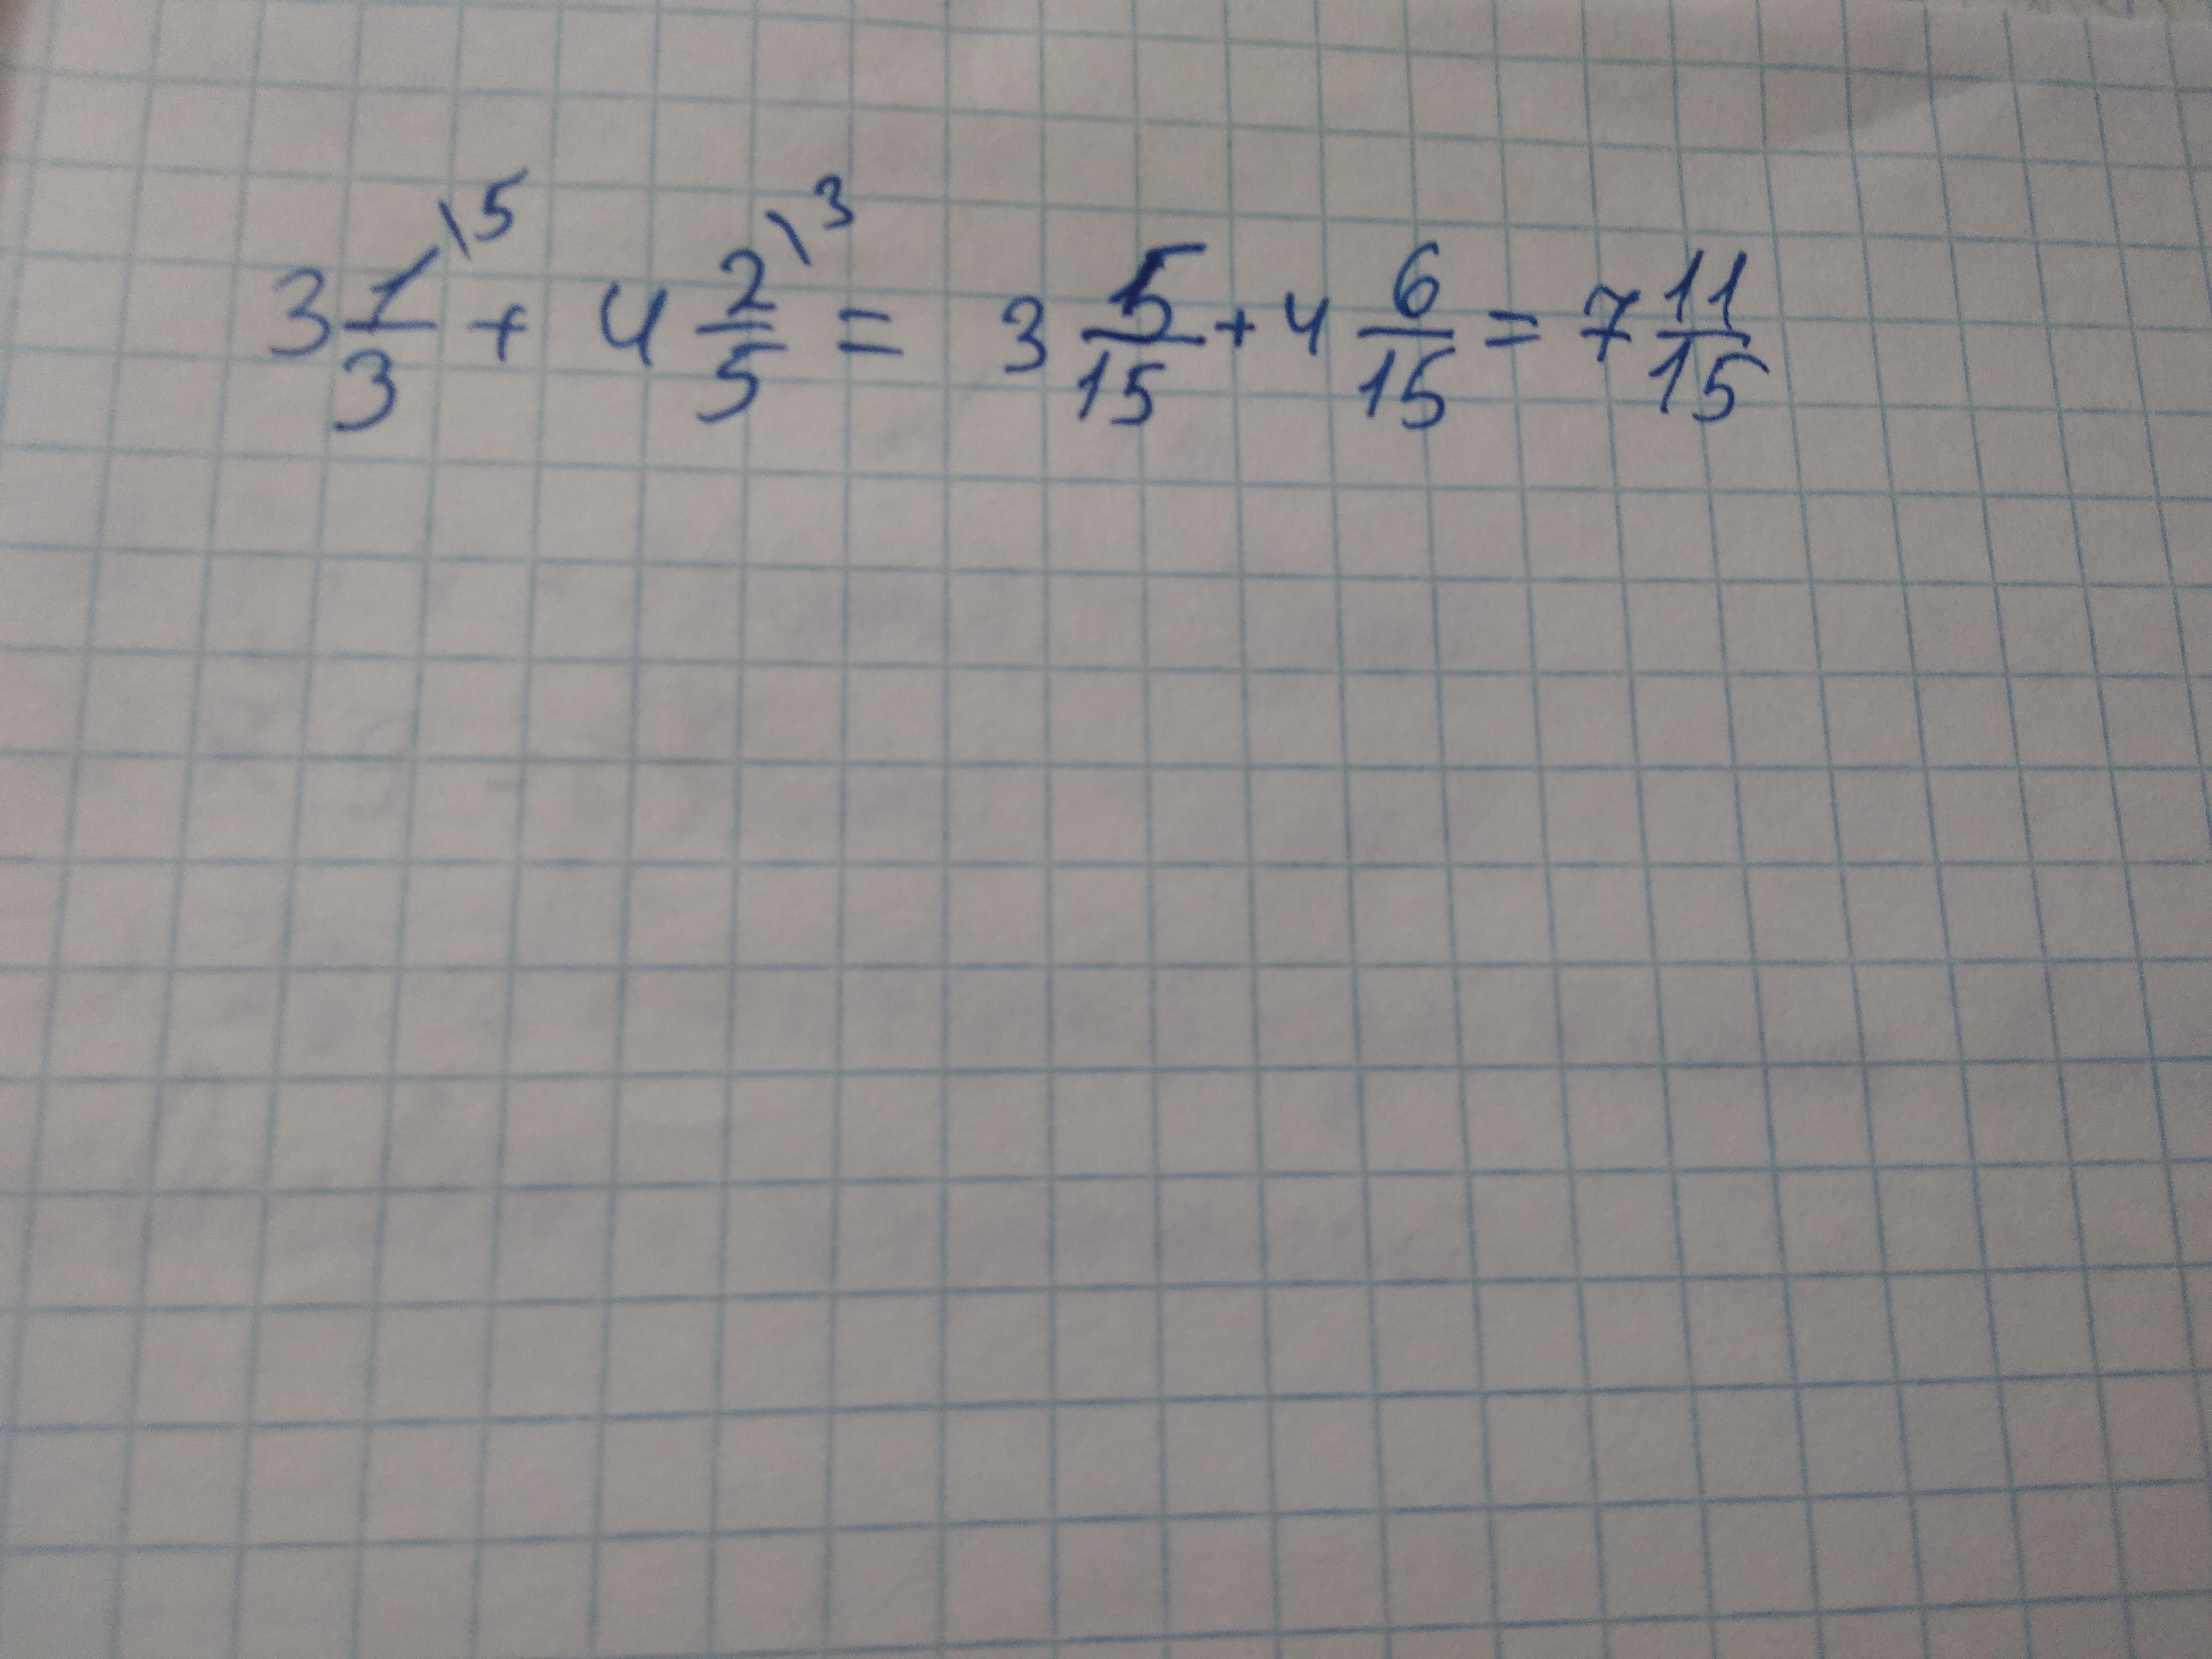 3 1/3 \5 + 4 2/5 \3 = 3 5/15 + 4 6/15 = 7 11/15